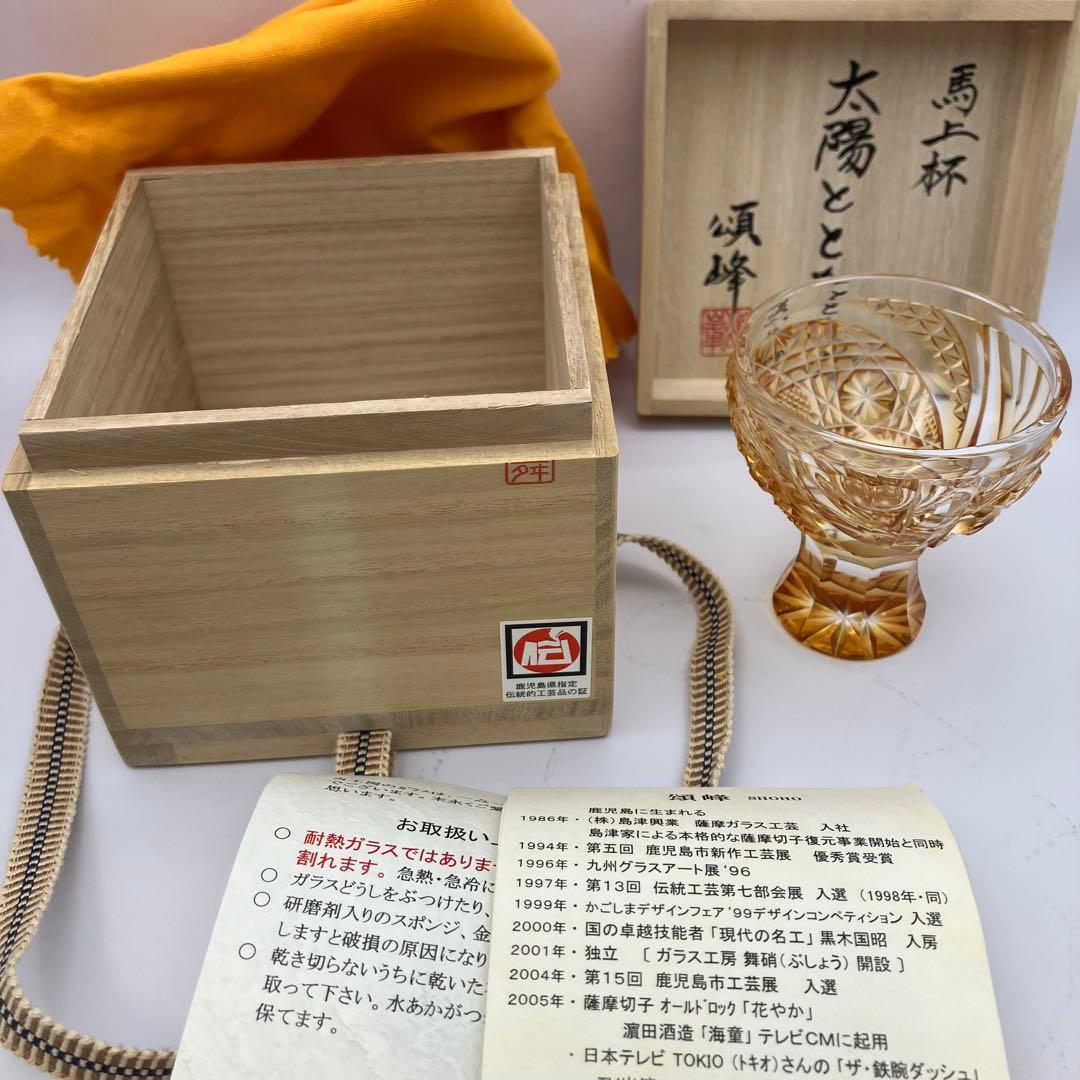 馬上杯
太陽とと
頌峰
鹿児島県指定
伝統的工芸品の証
思います。末永くご愛
お取扱い上
○ 耐熱ガラスではありませ
割れます。急熱・急冷に
○ ガラスどうしをぶつけたり、
○ 研磨剤入りのスポンジ、金
しますと破損の原因になり
○ 乾き切らないうちに乾いた
取って下さい。水あかがつ
保てます。
頌峰 SHOHO
鹿児島に生まれる
1986年・(株)島津興業 薩摩ガラス工芸 入社
島津家による本格的な薩摩切子復元事業開始と同時
1994年・第五回 鹿児島市新作工芸展 優秀賞受賞
1996年・九州グラスアート展'96
1997年・第13回 伝統工芸第七部会展 入選 (1998年・同)
1999年・かごしまデザインフェア'99デザインコンペティション 入選
2000年・国の卓越技能者「現代の名工」黒木国昭 入房
2001年・独立 [ ガラス工房 舞硝(ぶしょう) 開設 ]
2004年・第15回 鹿児島市工芸展 入選
2005年・薩摩切子 オールドロック「花やか」
濵田酒造「海童」テレビCMに起用
・日本テレビ TOKIO (トキオ)さんの「ザ・鉄腕ダッシュ」